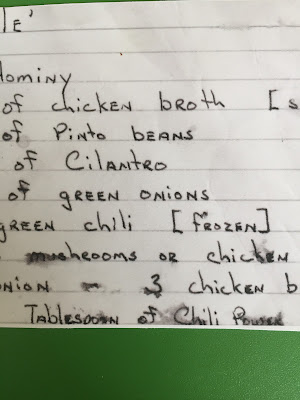 LE'
Hominy
of chicken broth [s
of Pinto beans
of Cilantro
of green onions
green chili [frozen]
mushrooms or chicken
onion - 3 chicken b
Tablespoon of Chili Powder